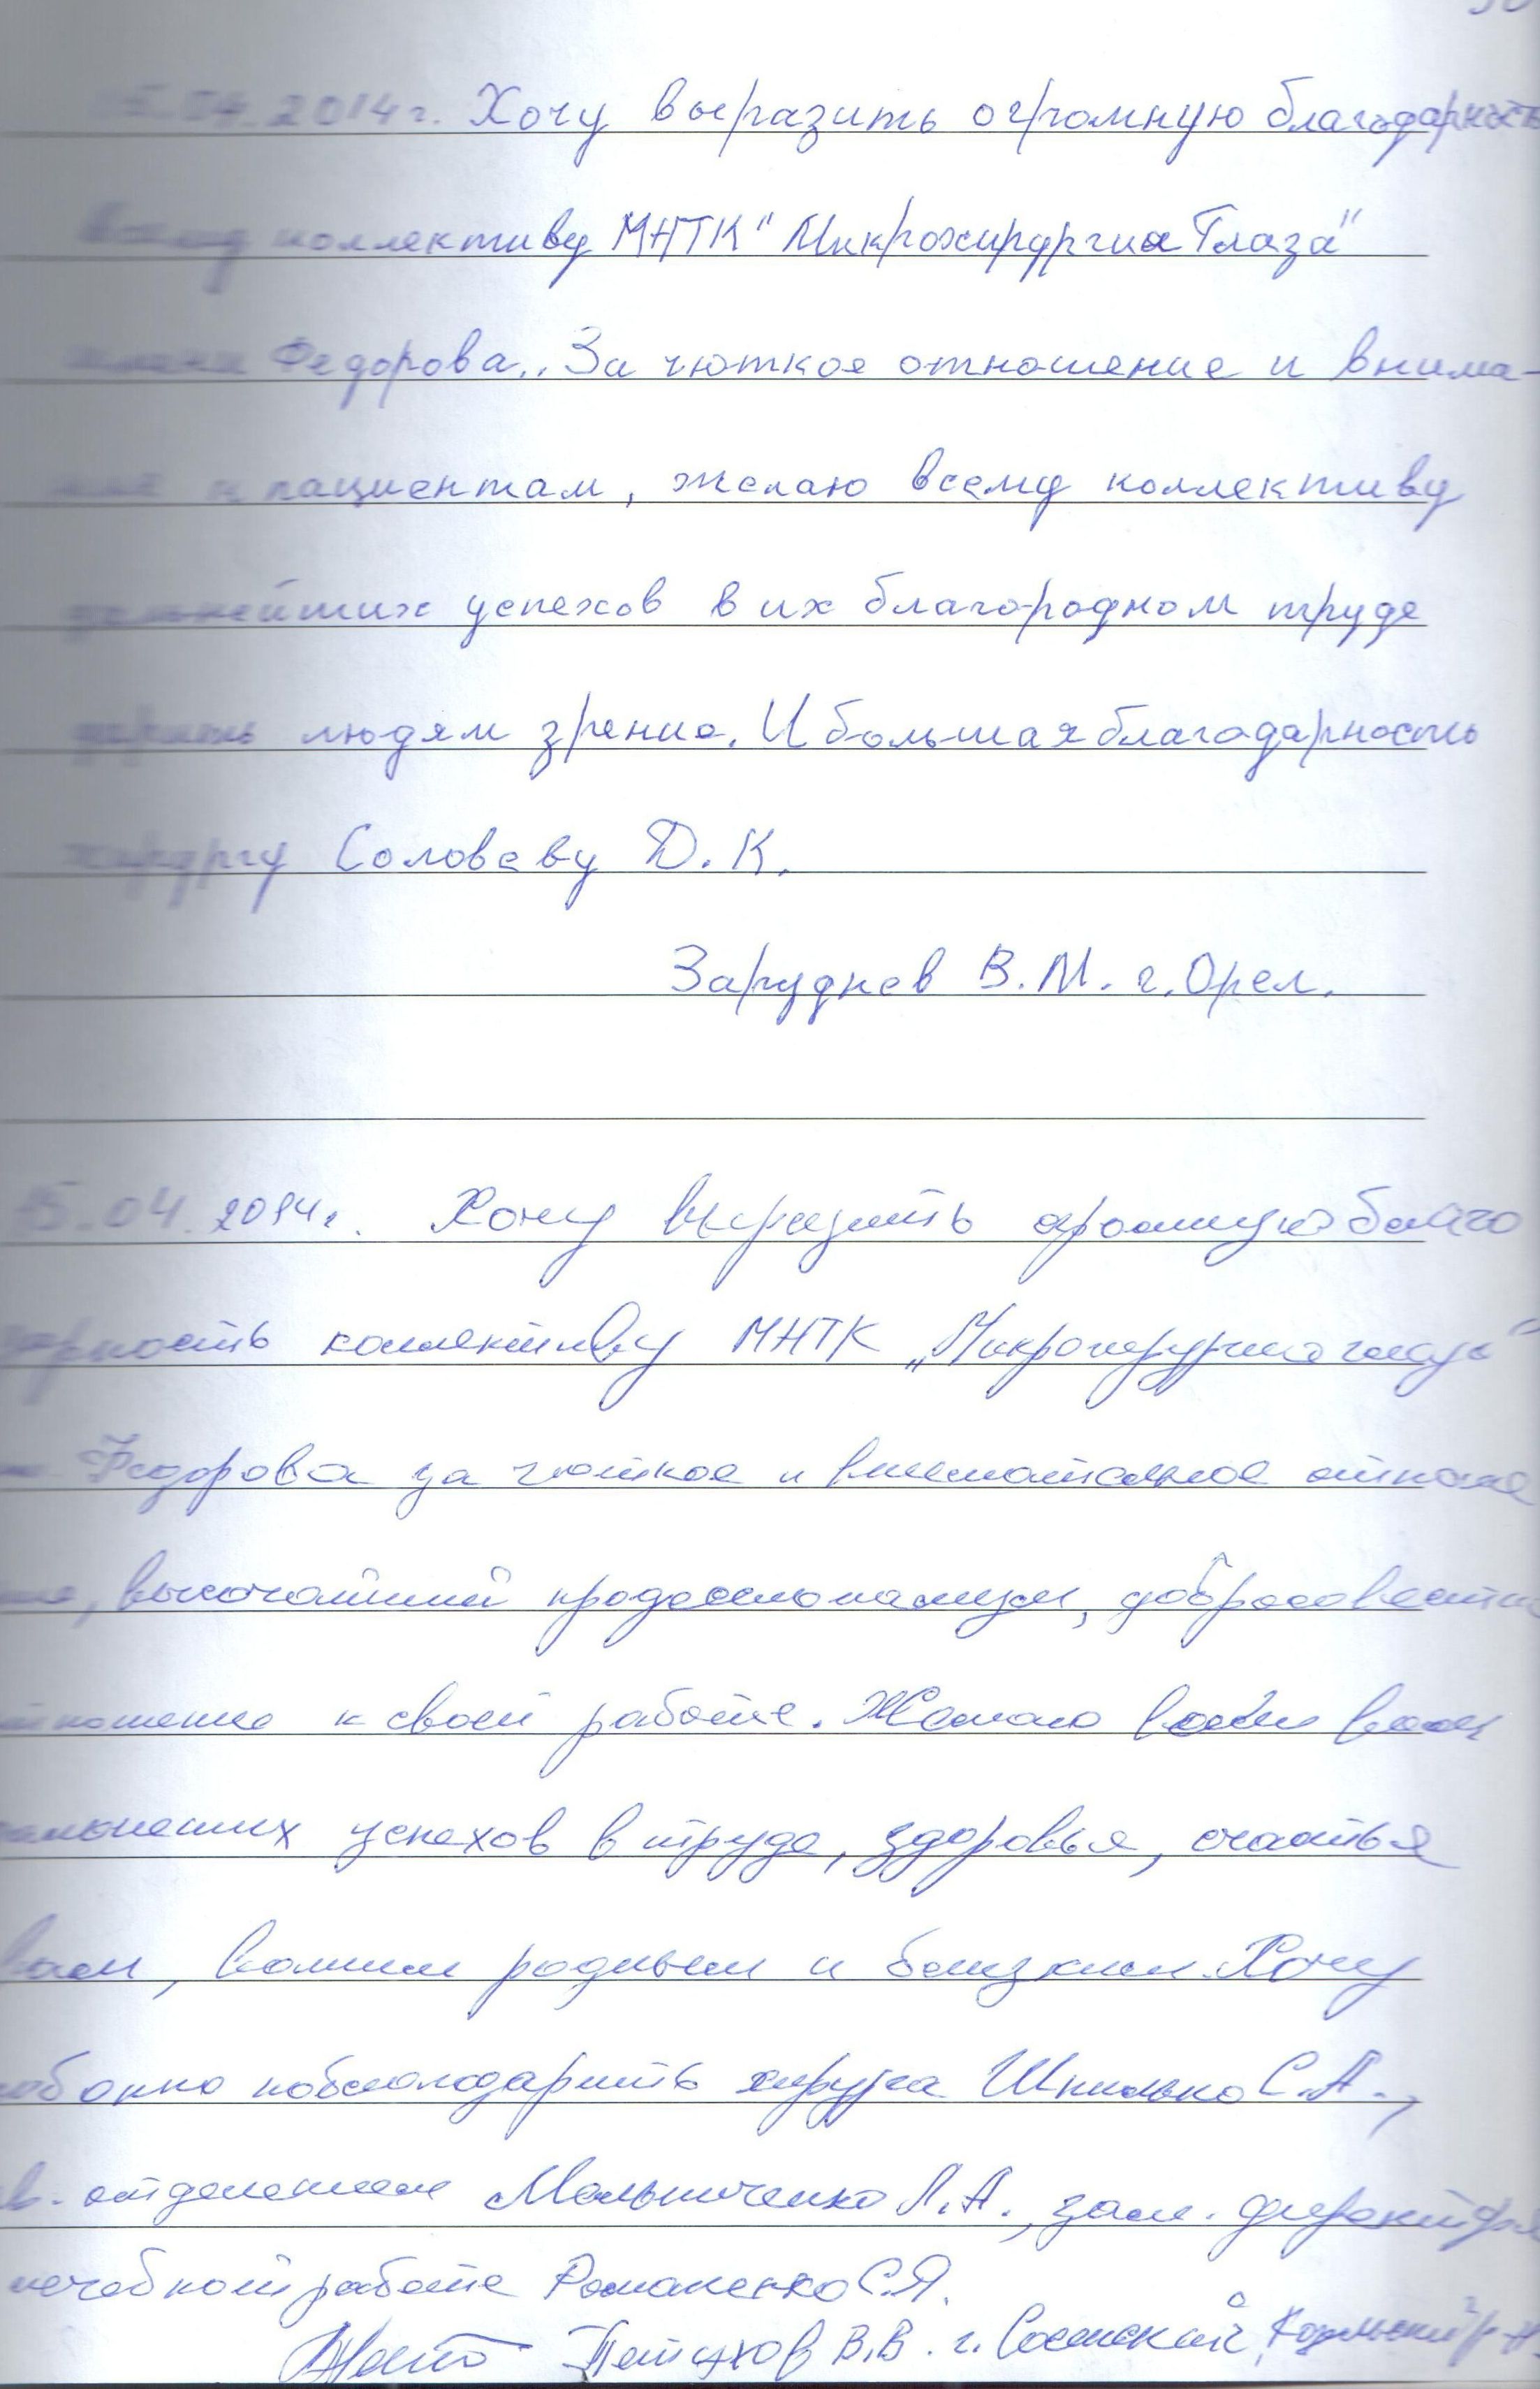 15.04.2014г. Хочу выразить огромную благодарность
всему коллективу МНТК "Микрохирургия Глаза"
имени Федорова.. За чюткое отношение и внима-
ние к пациентам, желаю всему коллективу
дальнейших успехов в их благородном труде
дарить людям зрение. И большая благодарность
хирургу Соловеву Д.К.
Заруднев В.М. г.Орел.
15.04.2014г. Хочу выразить огромную благо
дарность коллективу МНТК „Микрохирургия глаза"
Федорова за чюткое и внимательное отноше
ние, высочайший профессионализм, добросовестное
отношение к своей работе. Желаю всем вам
дальнейших успехов в труде, здоровья, счастья
вам, вашим родным и близким. Хочу
особенно поблагодарить хирурга Шпилько С.А.,
отделением Мельниченко Л.А., зам. директора
лечебной работе Романенко С.Я.
Петухов В.В. г. Сосенский, Козельский р-н.